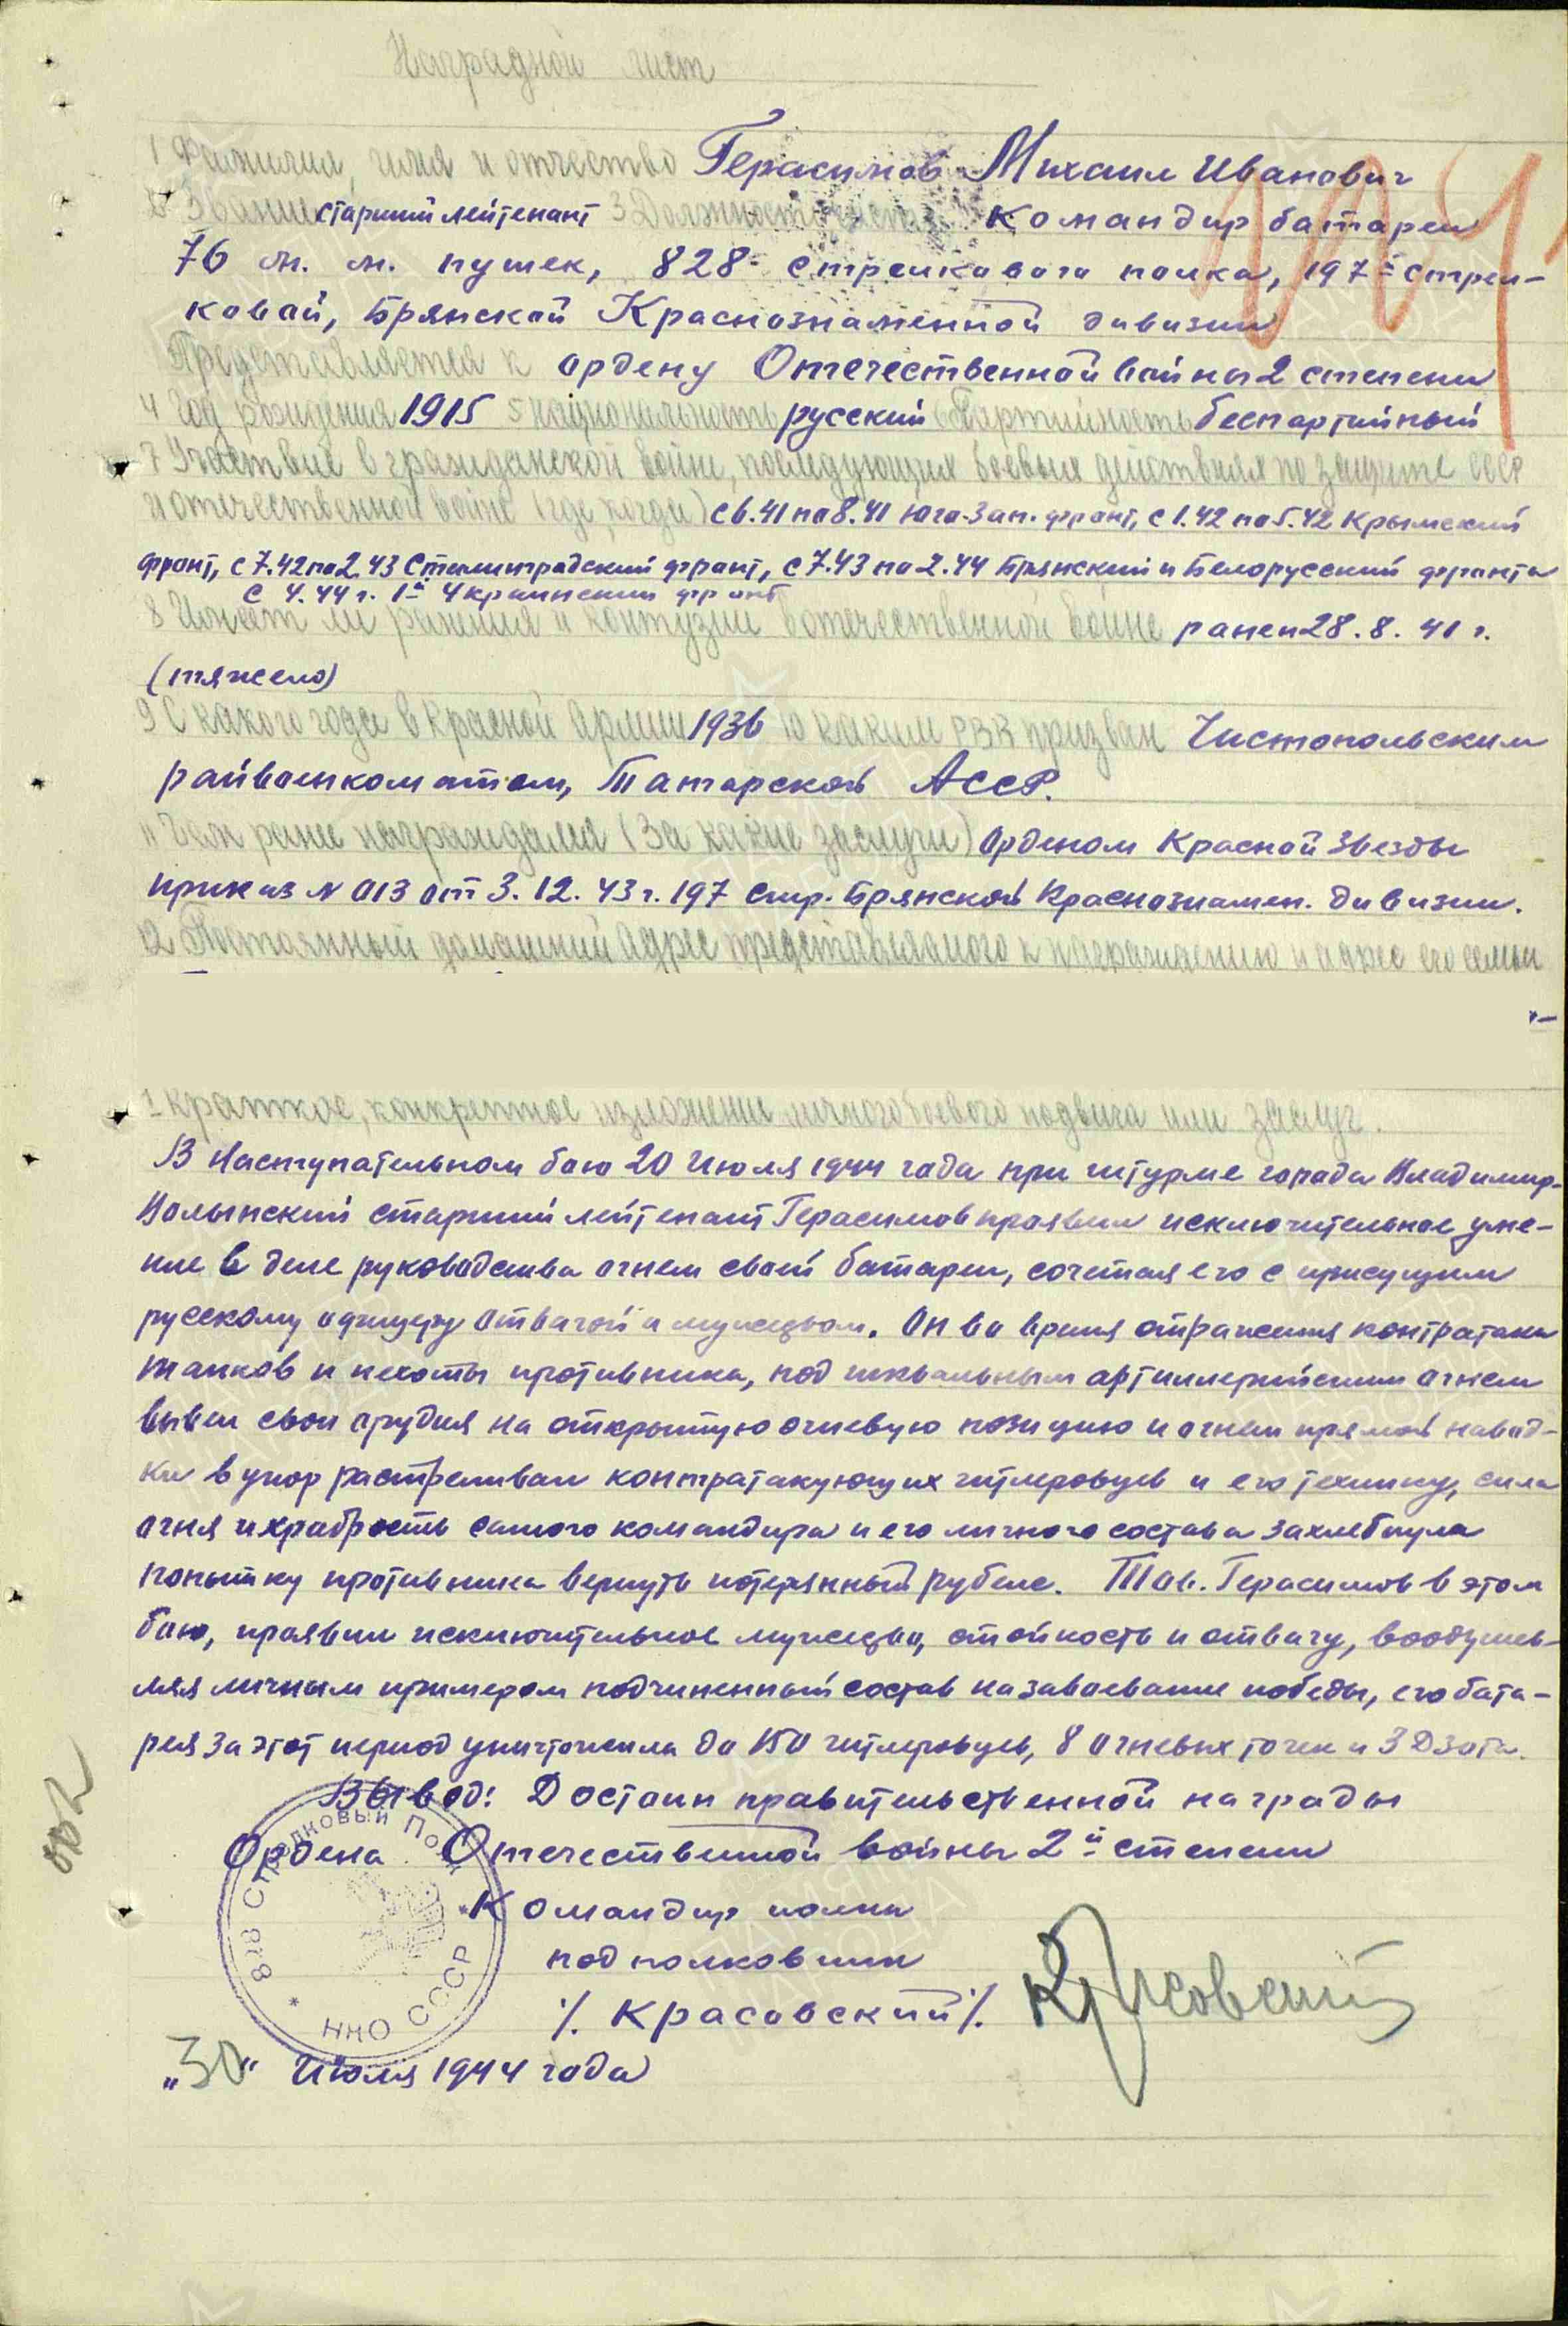 Наградной лист
1 Фамилия, имя и отчество Герасимов Михаил Иванович
2 Звание старший лейтенант 3 Должность, часть командир батареи
76 м.м. пушек, 828- стрелкового полка, 197-й стрел-
ковой, Брянской Краснознаменной дивизии
Представляется к ордену Отечественной войны 2 степени
4 Год рождения 1915 5 национальность русский 6 Партийность беспартийный
7 Участвие в гражданской войне, последующих боевых действиях по защите СССР
и отечественной войне (где, когда) с 6.41 по 8.41 Юго-Зап. фронт, с 1.42 по 5.42 Крымский
фронт, с 7.42 по 2.43 Сталинградский фронт, с 7.43 по 2.44 Брянский и Белорусский фронта
с 4.44 г. 1й Украинский фронт
8 Имеет ли ранения и контузии в отечественной войне ранен 28.8.41 г.
(тяжело)
9 С какого года в Красной Армии 1936 10 каким РВК призван Чистопольским
райвоенкоматом, Татарской АССР.
11 Чем ранее награждался (За какие заслуги) Орденом Красной Звезды
приказ № 013 от 3.12.43 г. 197 стр. Брянской Краснознамен. дивизии.
12 Постоянный домашний адрес представляемого к награждению и адрес его семьи
1 Краткое, конкретное изложение личного боевого подвига или заслуг.
В Наступательном бою 20 Июля 1944 года при штурме города Владимир-
Волынский старший лейтенант Герасимов проявил исключительное уме-
ние в деле руководства огнем своей батареи, сочетая его с присущим
русскому офицеру отвагой и мужеством. Он во время отражения контратаки
танков и пехоты противника, под шквальным артиллерийским огнем
вывел свои орудия на открытую огневую позицию и огнем прямой навод-
ки в упор расстреливал контратакующих гитлеровцев и его технику, сила
огня и храбрость самого командира и его личного состава захлебнула
попытку противника вернуть потерянный рубеж. Тов. Герасимов в этом
бою, проявил исключительное мужество, стойкость и отвагу, воодушев-
ляя личным примером подчиненный состав на завоевание победы, его бата-
рея за этот период уничтожила до 150 гитлеровцев, 8 огневых точек и 3 Дзота.
Вывод: Достоин правительственной награды
Ордена Отечественной войны 2й степени
Командир полка
подполковник
/. Красовский /.
„30“ Июля 1944 года
828 Стрелковый Полк * НКО СССР *
002